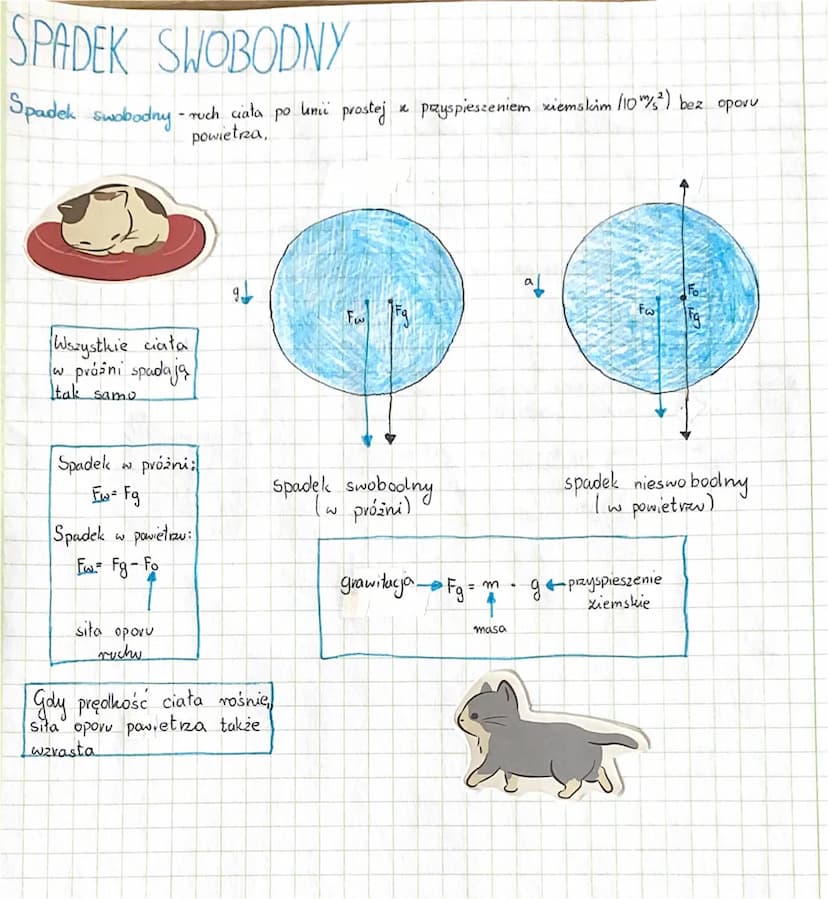 SPADEK SWOBODNY
Spadek swobodny - ruch ciała po linii prostej z przyspieszeniem ziemskim (10 m/s²) bez oporu
powietrza.
g
Fw
Fg
a
Fo
Fw
Fg
Wszystkie ciała
w próżni spadają
tak samo
spadek swobodny
(w próżni)
spadek nieswobodny
(w powietrzu)
Spadek w próżni:
Fw = Fg
Spadek w powietrzu:
Fw = Fg - Fo
siła oporu
ruchu
grawitacja → Fg = m · g ← przyspieszenie
ziemskie
masa
Gdy prędkość ciała rośnie,
siła oporu powietrza także
wzrasta